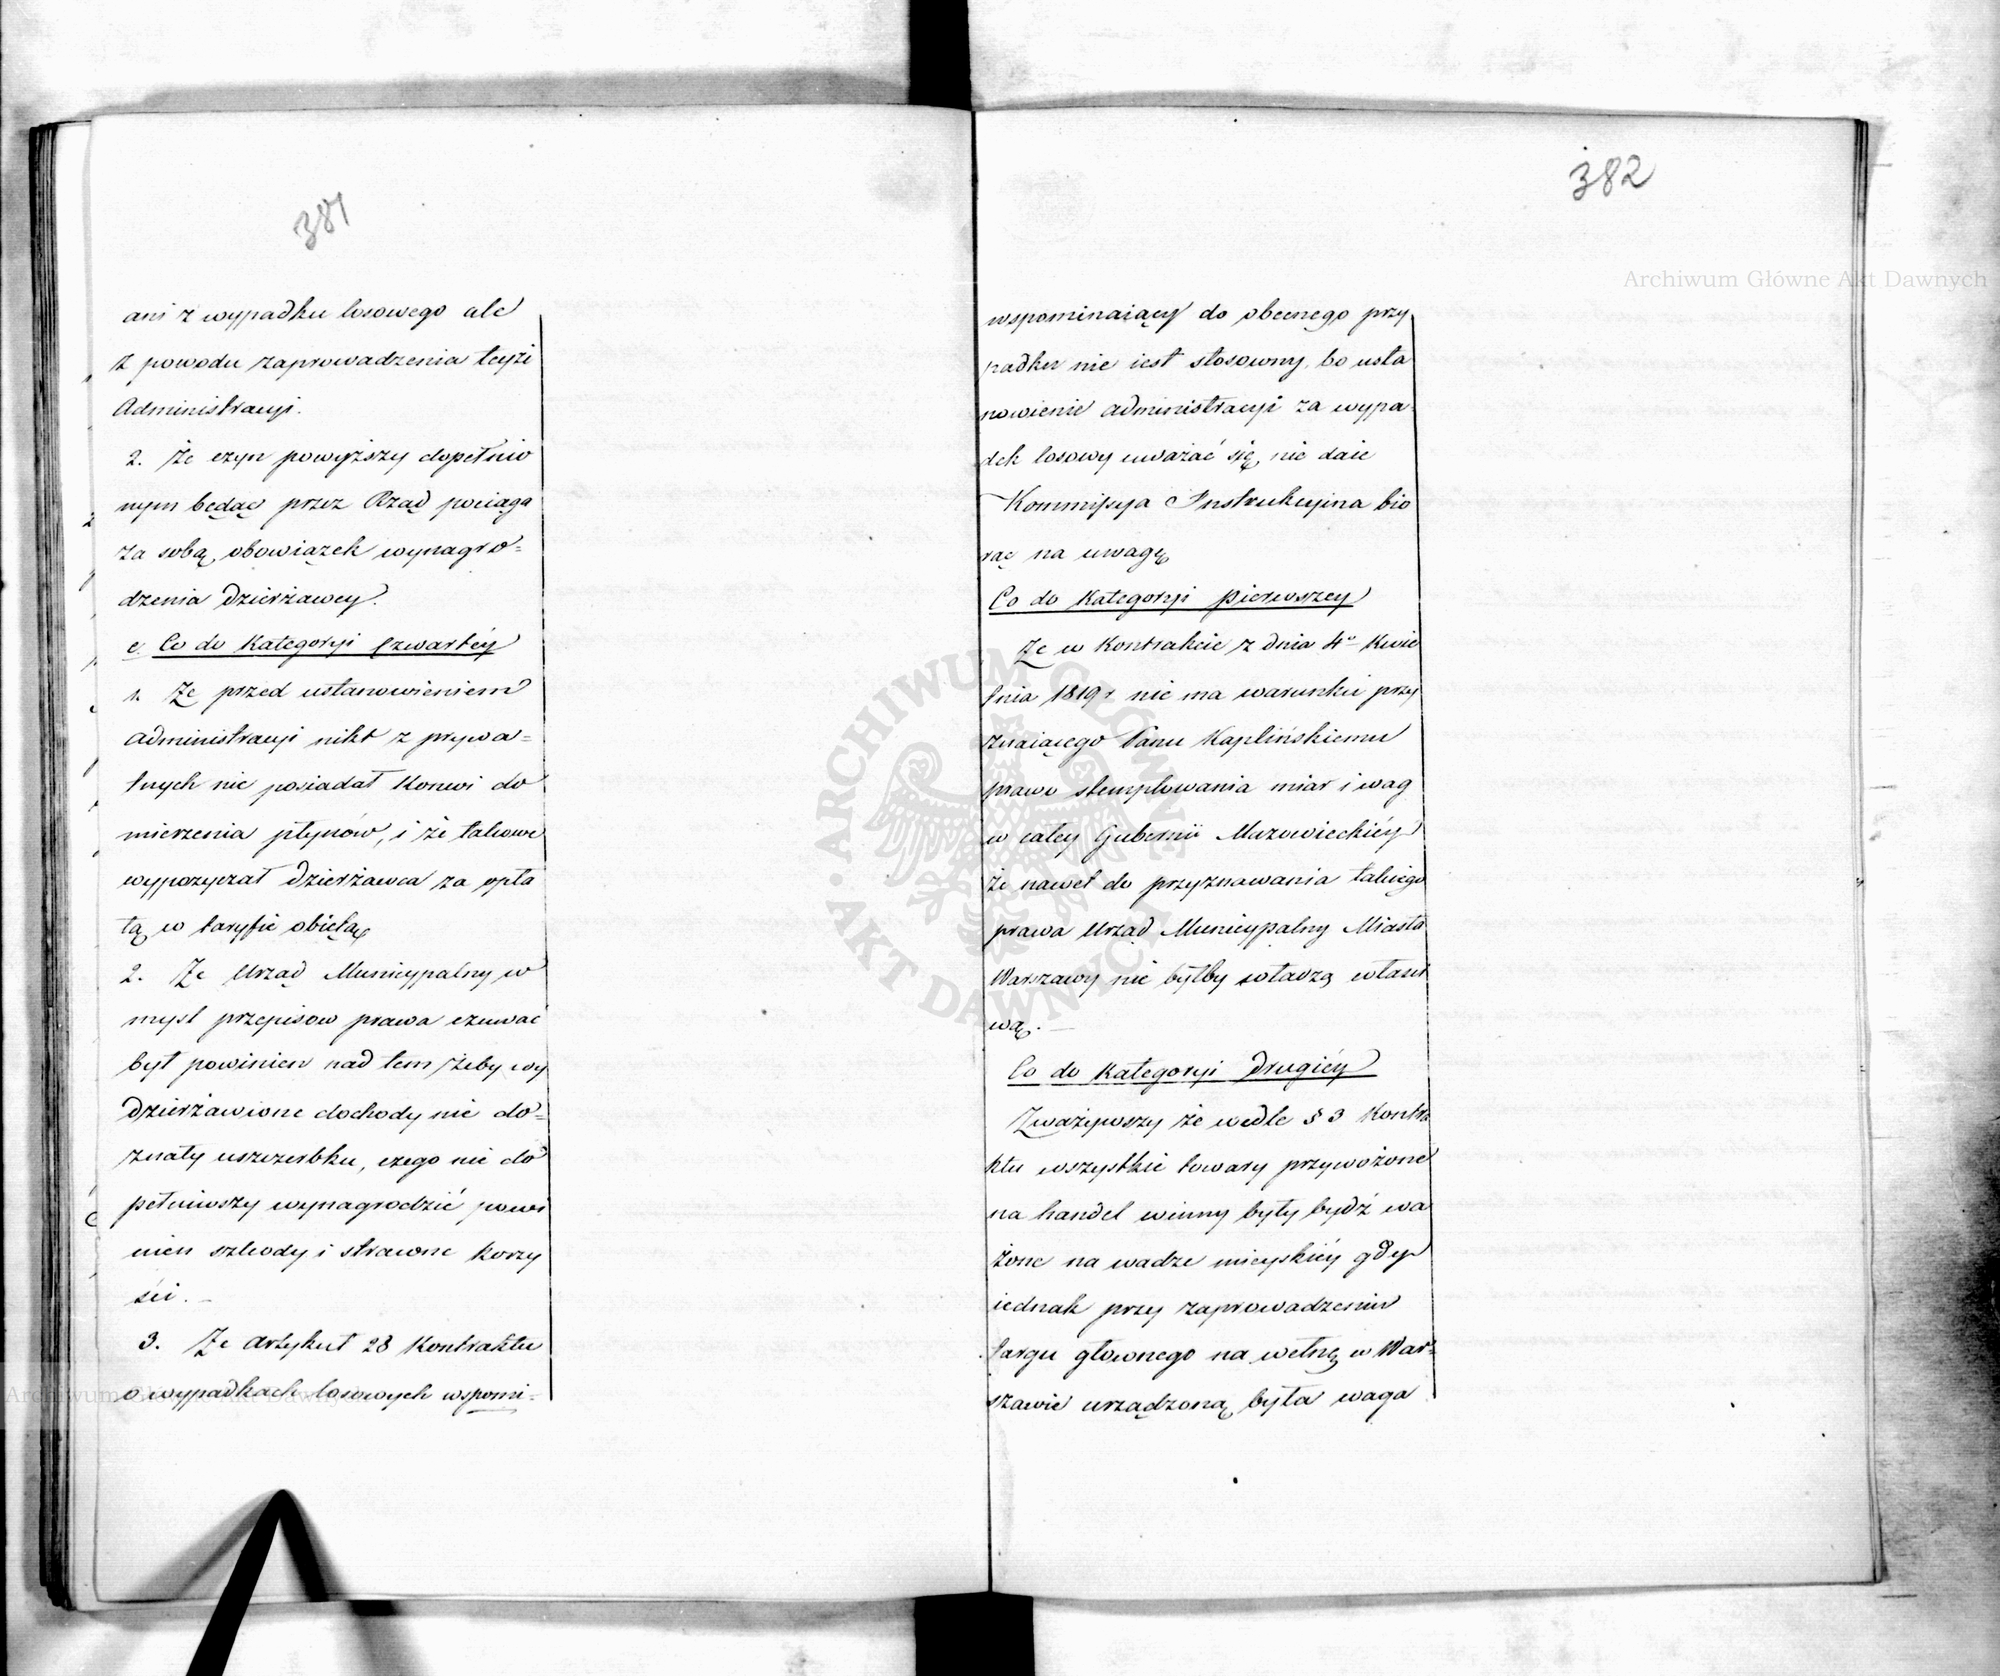 381
ani z wypadku losowego ale
z powodu zaprowadzenia teyże
Administracyi.
2. Że czyn powyższy dopełnio
nym będąc przez Rząd pociąga
za sobą obowiązek wynagro=
dzenia Dzierżawcy.
e. Co do Kategoryi Czwartéy
1. Że przed ustanowieniem
Administracyi nikt z prywa=
tnych nie posiadał Konwi do
mierzenia płynów, i że takowe
wypożyczał Dzierżawca za opła
tą w taryfie obiętą
2. Że Urząd Municypalny w
myśl przepisow prawa czuwać
był powinien nad tem żeby wy
dzierżawione dochody nie do=
znały uszczerbku, czego nie do
pełniwszy wynagrodzić powi
nien szkody i stracone korzy
ści. _
3. Że Artykuł 28 Kontraktu
o wypadkach losowych wspomi=
382
wspominaiący do obecnego przy
padku nie iest stosowny, bo usta
nowienie administracyi za wypa
dek losowy uważać się nie daie
Kommissya Instrukcyina bio
rąc na uwagę
Co do Kategoryi pierwszey
Że w Kontrakcie z dnia 4º Kwie
tnia 1819 r. nie ma warunku przy
znaiącego Panu Kaplińskiemu
prawo stemplowania miar i wag
w całey Gubernii Mazowieckiéy
że nawet do przyznawania takiego
prawa Urząd Municypalny Miasta
Warszawy nie byłby władzą właści
wą. _
Co do Kategoryi Drugiéy
Zważywszy że wedle § 3 Kontra
ktu wszystkie towary przywożone
na handel winny były bydź wa
żone na wadze mieyskiéy gdy
iednak przy zaprowadzeniu
targu głownego na wełnę w War=
szawie urządzoną była waga
Archiwum Główne Akt Dawnych
ARCHIWUM GŁÓWNE AKT DAWNYCH
Archiwum Główne Akt Dawnych